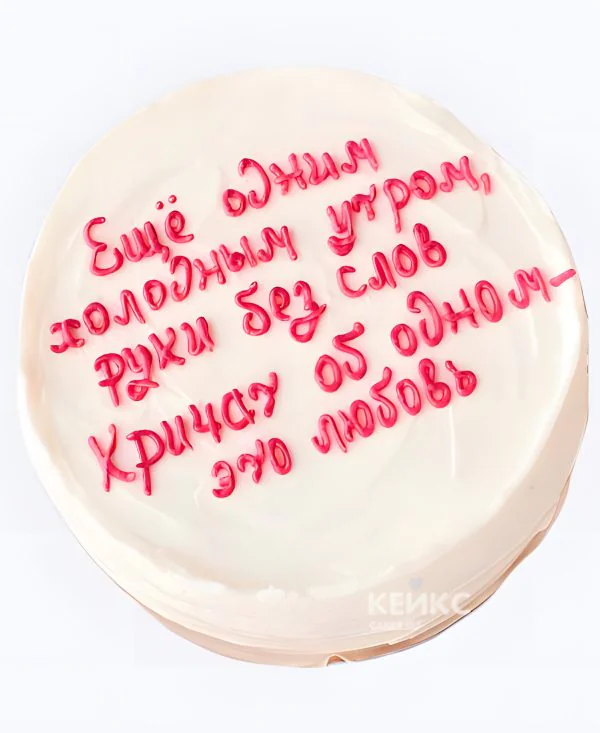 Ещё одним
холодным утром,
руки без слов
Кричат об одном-
это любовь
КЕЙКС